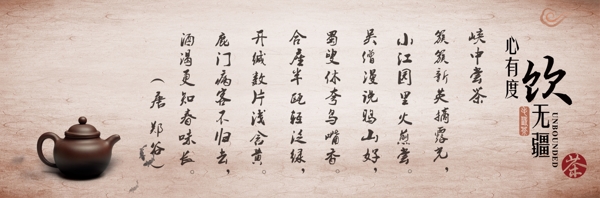 心有度
饮无疆
UNBOUNDED
茶
峡中尝茶
簇簇新英摘露光，
小江园里火煎尝。
吴僧漫说鸦山好，
蜀叟休夸鸟嘴香。
合座半瓯轻泛绿，
开缄数片浅含黄。
鹿门病客不归去，
酒渴更知春味长。
（唐 郑谷）